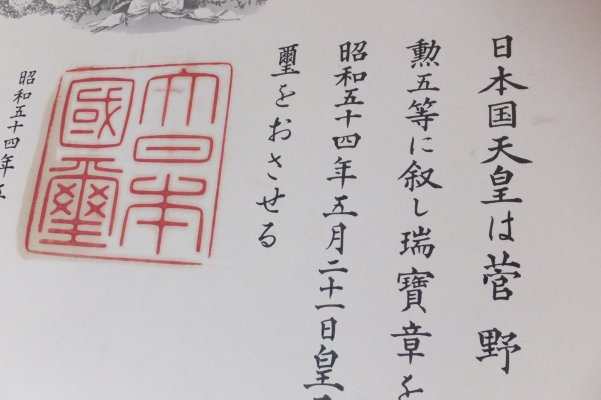 日本国天皇は菅野
勲五等に叙し瑞寶章を
昭和五十四年五月二十一日皇
璽をおさせる
大日本
國璽
昭和五十四年五